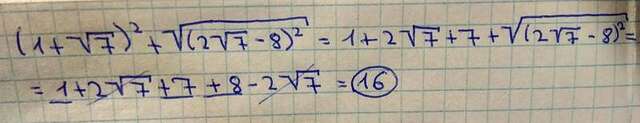 (1+√7)² + √(2√7-8)² = 1+2√7+7+√(2√7-8)² =
= 1+2√7+7+8-2√7 = 16